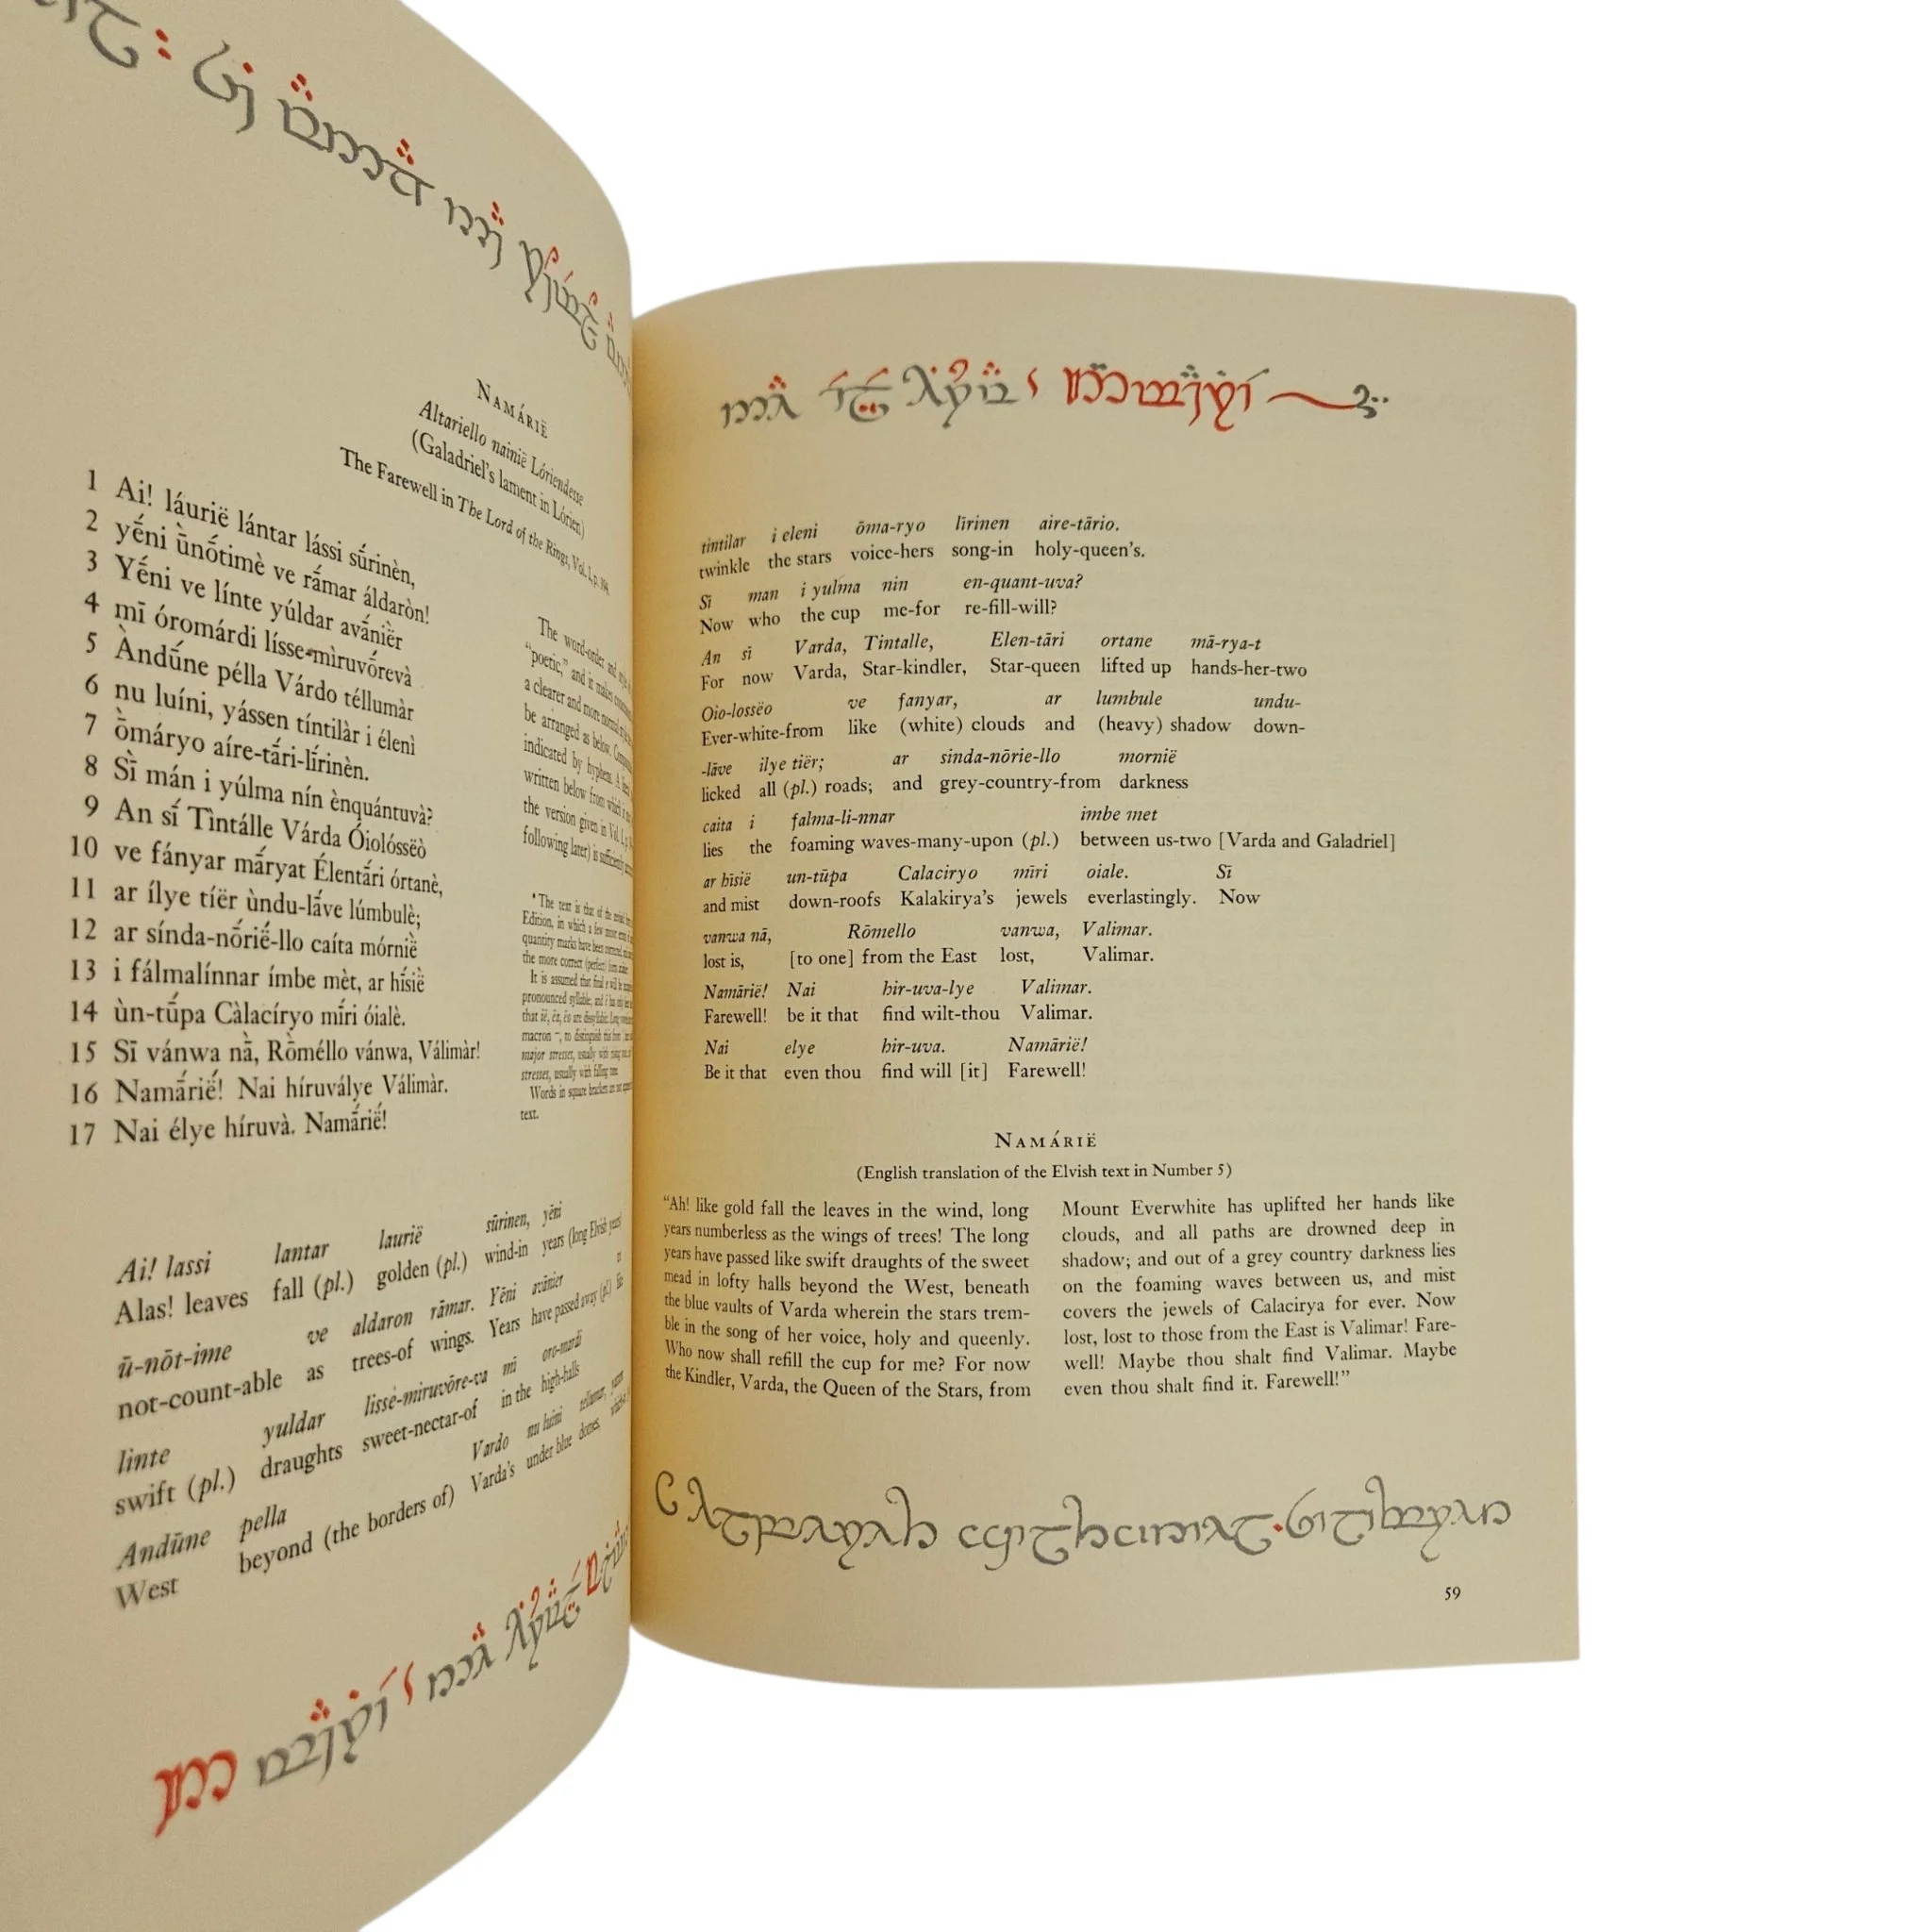 NAMÁRIË
Altariello nainië Lóriendesse
(Galadriel's lament in Lórien)
The Farewell in The Lord of the Rings, Vol. I, p. 394.
1 Ai! láurië lántar lássi sū́rinèn,
2 yḗni ū̀nṓtimè ve rā́mar áldaròn!
3 Yḗni ve línte yúldar avā́nièr
4 mī óromárdi lísse-mìruvṓrevà
5 Àndū́ne pélla Várdo téllumàr
6 nu luíni, yássen tíntilàr i élenì
7 ṑmáryo aíre-tā́ri-lī́rinèn.
8 Sī̀ mán i yúlma nín ènquántuvà?
9 An sī́ Tìntálle Várda Óiolóssëò
10 ve fányar mā́ryat Élentā́ri órtanè,
11 ar ílye tíër ùndu-lā́ve lúmbulè;
12 ar sínda-nṓrië́-llo caíta mórnië̀
13 i fálmalínnar ímbe mèt, ar hī́sië̀
14 ùn-tū́pa Càlacíryo mī́ri óialè.
15 Sī vánwa nā̀, Rōméllo vánwa, Válimàr!
16 Namā́rië́! Nai híruválye Válimàr.
17 Nai élye híruvà. Namā́rië́!
The word-order and
"poetic," and it makes
a clearer and more normal
be arranged as below.
indicated by hyphens. A
written below from which it
the version given in Vol. I, p.
following later) is sufficiently
* The text is that of the
Edition, in which a few
quantity marks have been
the more correct (perfect) form
It is assumed that final e will be
pronounced syllable; and
that ië, ëa, ëo are disyllabic. Long
macron ¯, to distinguish this from
major stresses, usually with rising
stresses, usually with falling tone.
Words in square brackets are not
text.
Ai! lassi lantar laurië sūrinen, yēni
Alas! leaves fall (pl.) golden (pl.) wind-in years (long Elvish years)
ū-nōt-ime ve aldaron rāmar. Yēni avānier
not-count-able as trees-of wings. Years have passed away (pl.)
linte yuldar lisse-miruvōre-va mi oro-mardi
swift (pl.) draughts sweet-nectar-of in the high-halls
Andūne pella Vardo nu luini tellumar,
West beyond (the borders of) Varda's under blue domes,
tintilar i eleni ōma-ryo līrinen aire-tārio.
twinkle the stars voice-hers song-in holy-queen's.
Sī man i yulma nin en-quant-uva?
Now who the cup me-for re-fill-will?
An sī Varda, Tintalle, Elen-tāri ortane mā-rya-t
For now Varda, Star-kindler, Star-queen lifted up hands-her-two
Oio-lossëo ve fanyar, ar lumbule undu-
Ever-white-from like (white) clouds and (heavy) shadow down-
-lāve ilye tiër; ar sinda-nōrie-llo mornië
licked all (pl.) roads; and grey-country-from darkness
caita i falma-li-nnar imbe met
lies the foaming waves-many-upon (pl.) between us-two [Varda and Galadriel]
ar hīsië un-tūpa Calaciryo mīri oiale. Sī
and mist down-roofs Kalakirya's jewels everlastingly. Now
vanwa nā, Rōmello vanwa, Valimar.
lost is, [to one] from the East lost, Valimar.
Namārië! Nai hir-uva-lye Valimar.
Farewell! be it that find wilt-thou Valimar.
Nai elye hir-uva. Namārië!
Be it that even thou find will [it] Farewell!
NAMÁRIË
(English translation of the Elvish text in Number 5)
"Ah! like gold fall the leaves in the wind, long
years numberless as the wings of trees! The long
years have passed like swift draughts of the sweet
mead in lofty halls beyond the West, beneath
the blue vaults of Varda wherein the stars trem-
ble in the song of her voice, holy and queenly.
Who now shall refill the cup for me? For now
the Kindler, Varda, the Queen of the Stars, from
Mount Everwhite has uplifted her hands like
clouds, and all paths are drowned deep in
shadow; and out of a grey country darkness lies
on the foaming waves between us, and mist
covers the jewels of Calacirya for ever. Now
lost, lost to those from the East is Valimar! Fare-
well! Maybe thou shalt find Valimar. Maybe
even thou shalt find it. Farewell!"
59